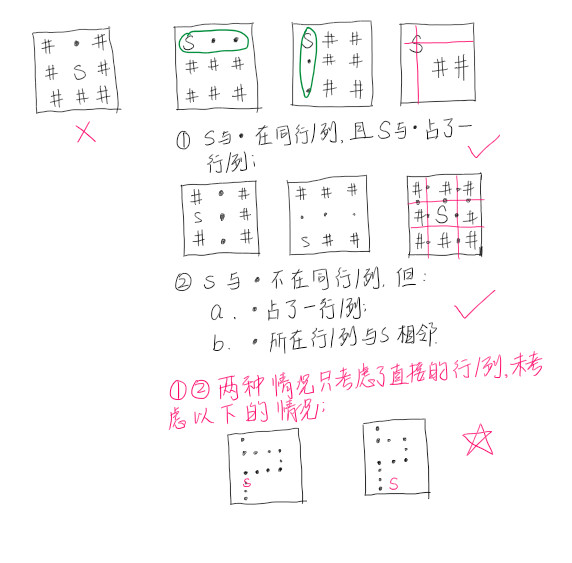 # • # S • • S # # S
# S # # # # • # # # #
# # # # # # • # #
① S与•在同行/列,且S与•占了一
行/列;
# • # # # # #•#•#
S • # • • • #•S•#
# • # S # # #•#•#
② S与•不在同行/列,但:
a. •占了一行/列;
b. •所在行/列与S相邻.
①②两种情况只考虑了直接的行/列,未考
虑以下的情况;
S S